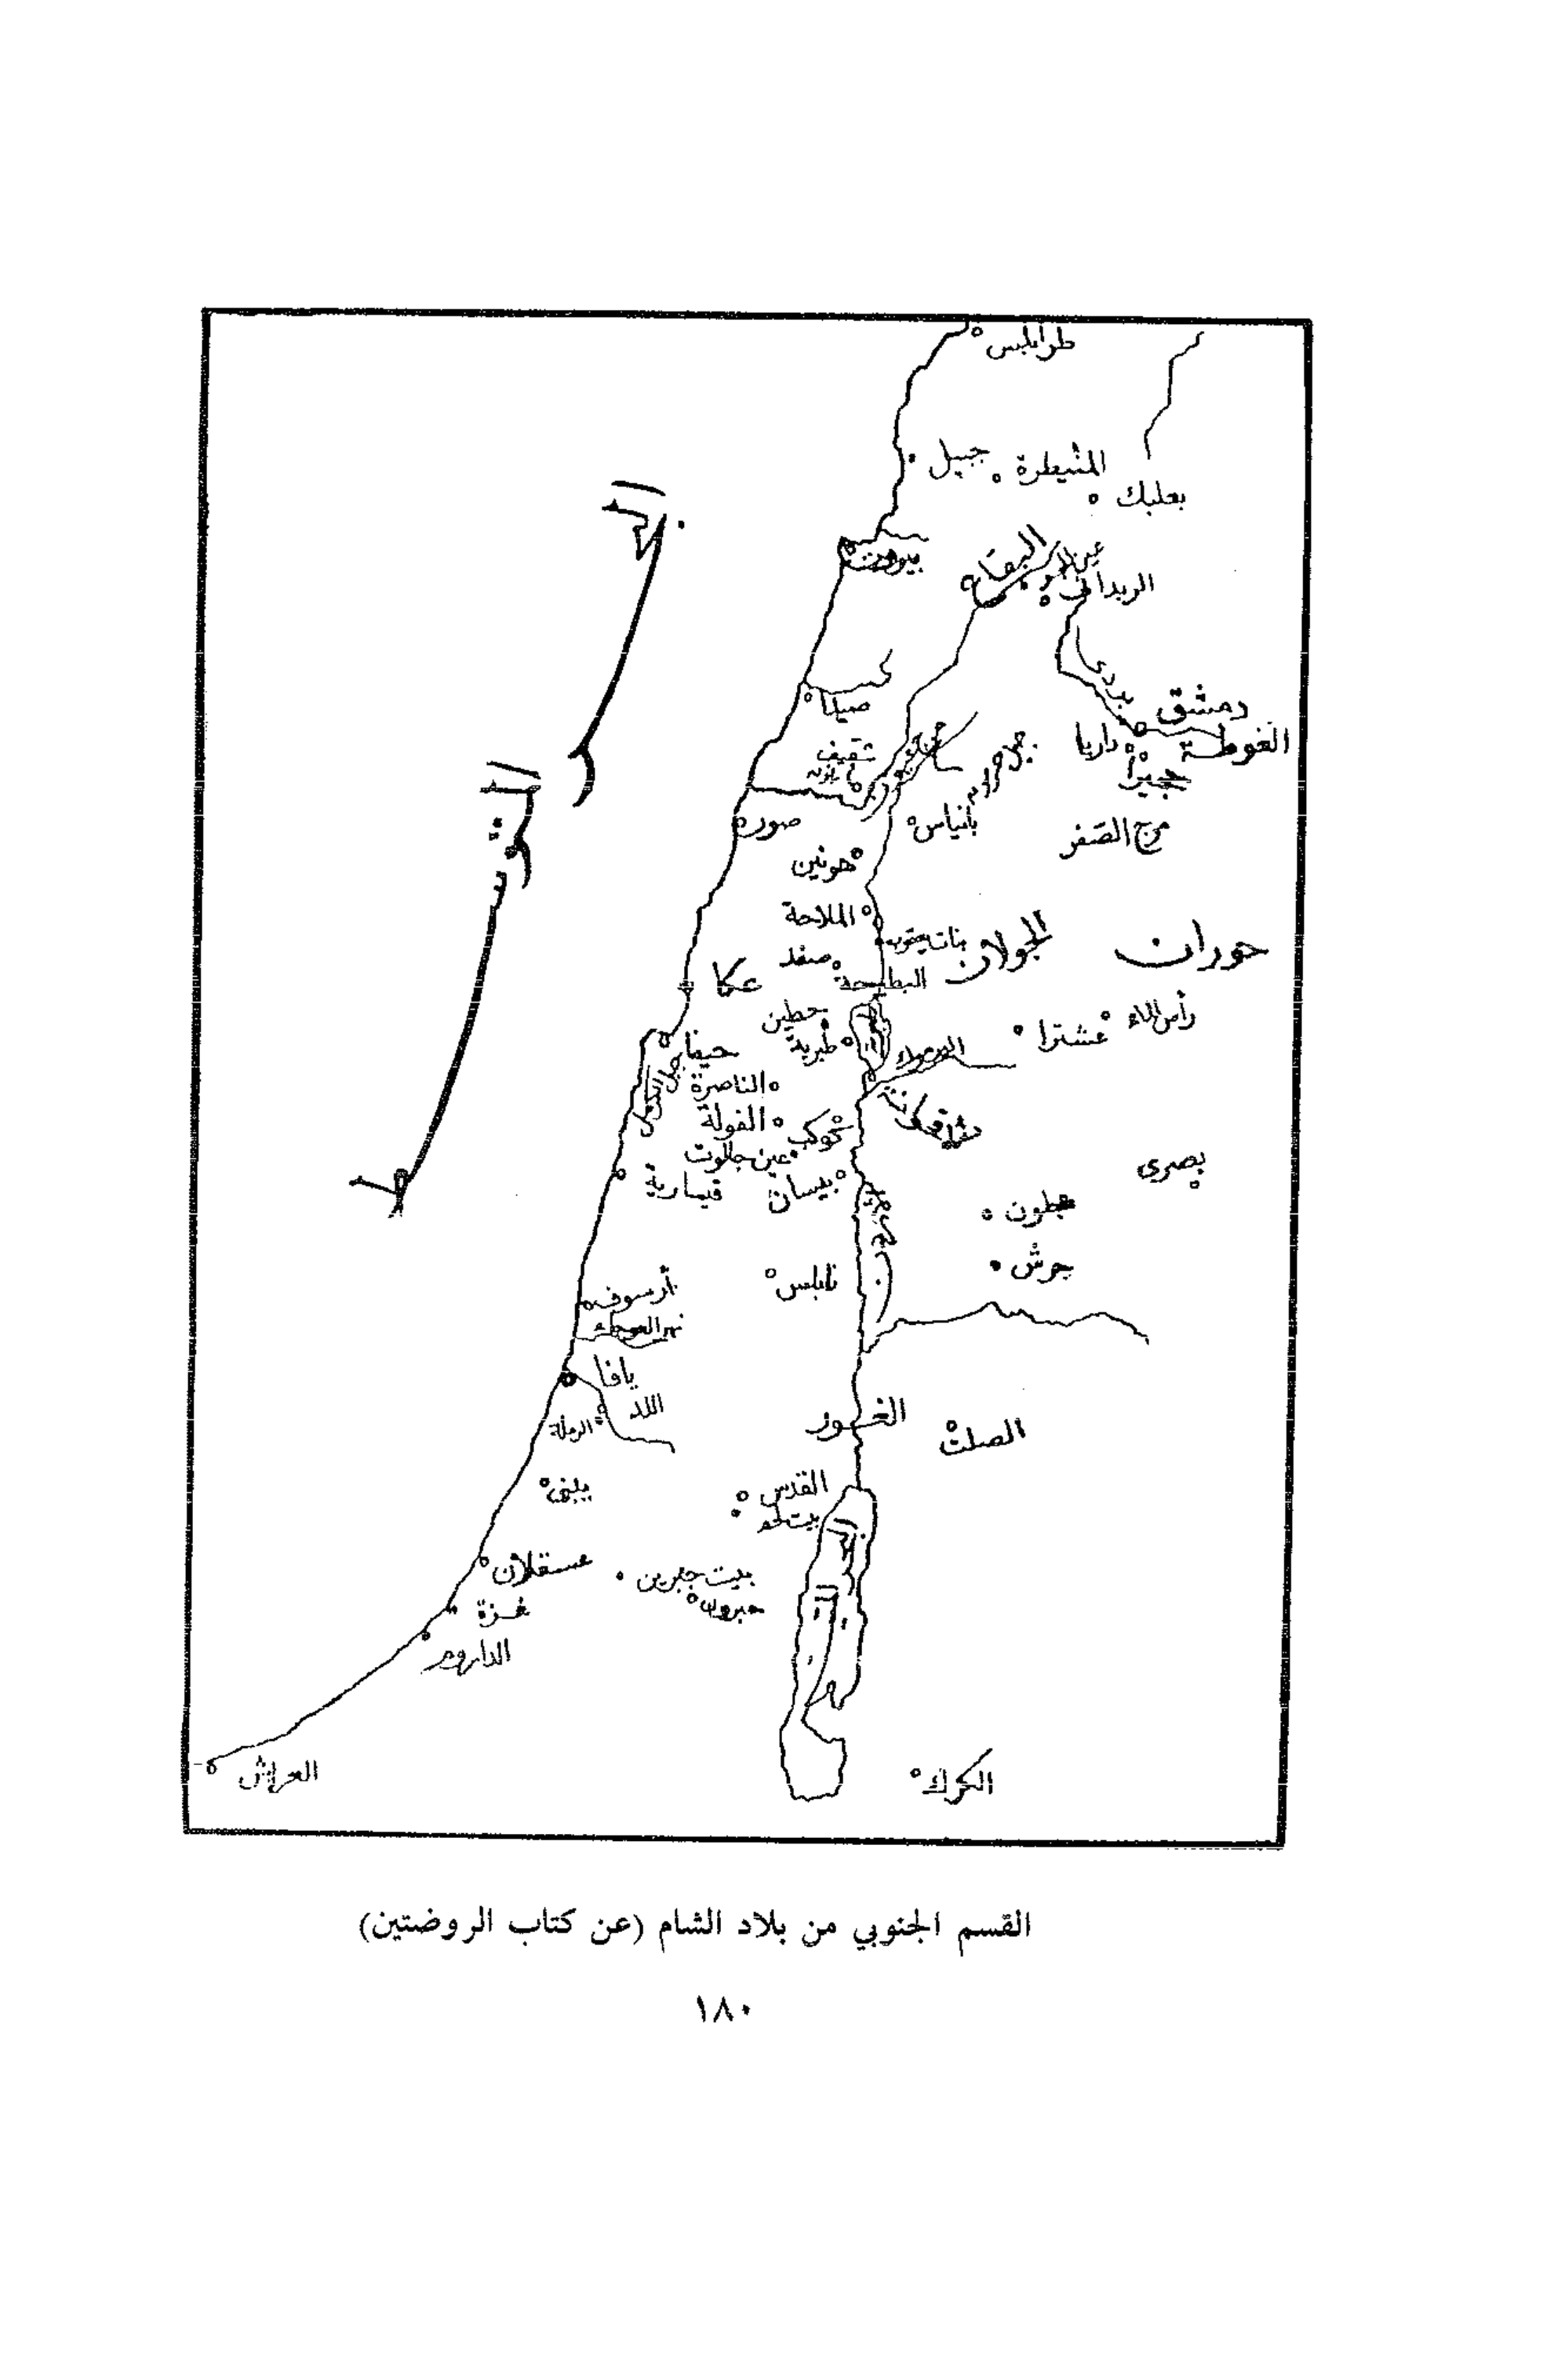 طرابلس
جبيل
المنيطرة
بعلبك
البحر المتوسط
بيروت
البقاع
الزبداني
بردى
صيدا
دمشق
الغوطة
داريا
شقيف
صور
بانياس
مرج الصفر
هونين
الملاحة
بنات يعقوب
الجولان
حوران
صفد
البطيحة
عكا
حطين
طبرية
عشترا
رأس الماء
حيفا
جبل الكرمل
الناصرة
الفولة
كوكب
عين جالوت
بيسان
قيسارية
بصرى
عجلون
جرش
نابلس
أرسوف
نهر العوجاء
يافا
اللد
الرملة
الغور
الصلت
يبنى
القدس
بيت لحم
عسقلان
بيت جبرين
حبرون
غزة
الداروم
العراش
الكرك
القسم الجنوبي من بلاد الشام (عن كتاب الروضتين)
١٨٠